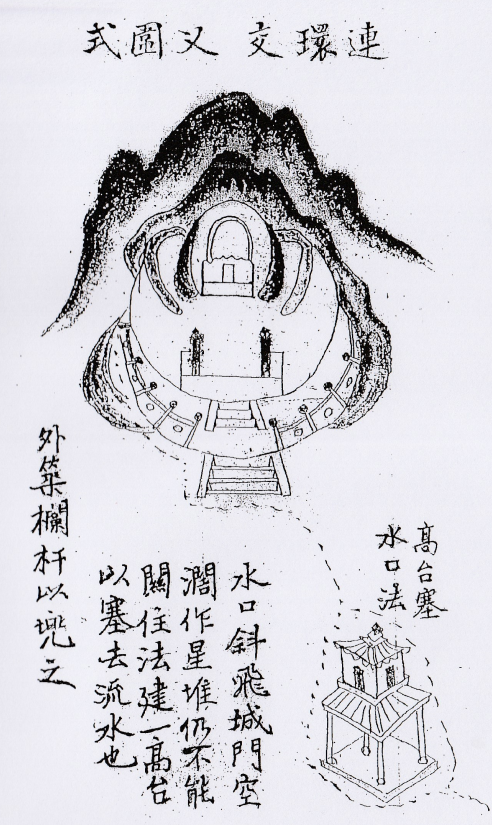 連環交义圖式
高台塞
水口法
水口斜飛城門空
濶作星堆仍不能
關住法建一高台
以塞去流水也
外築欄杆以兜之